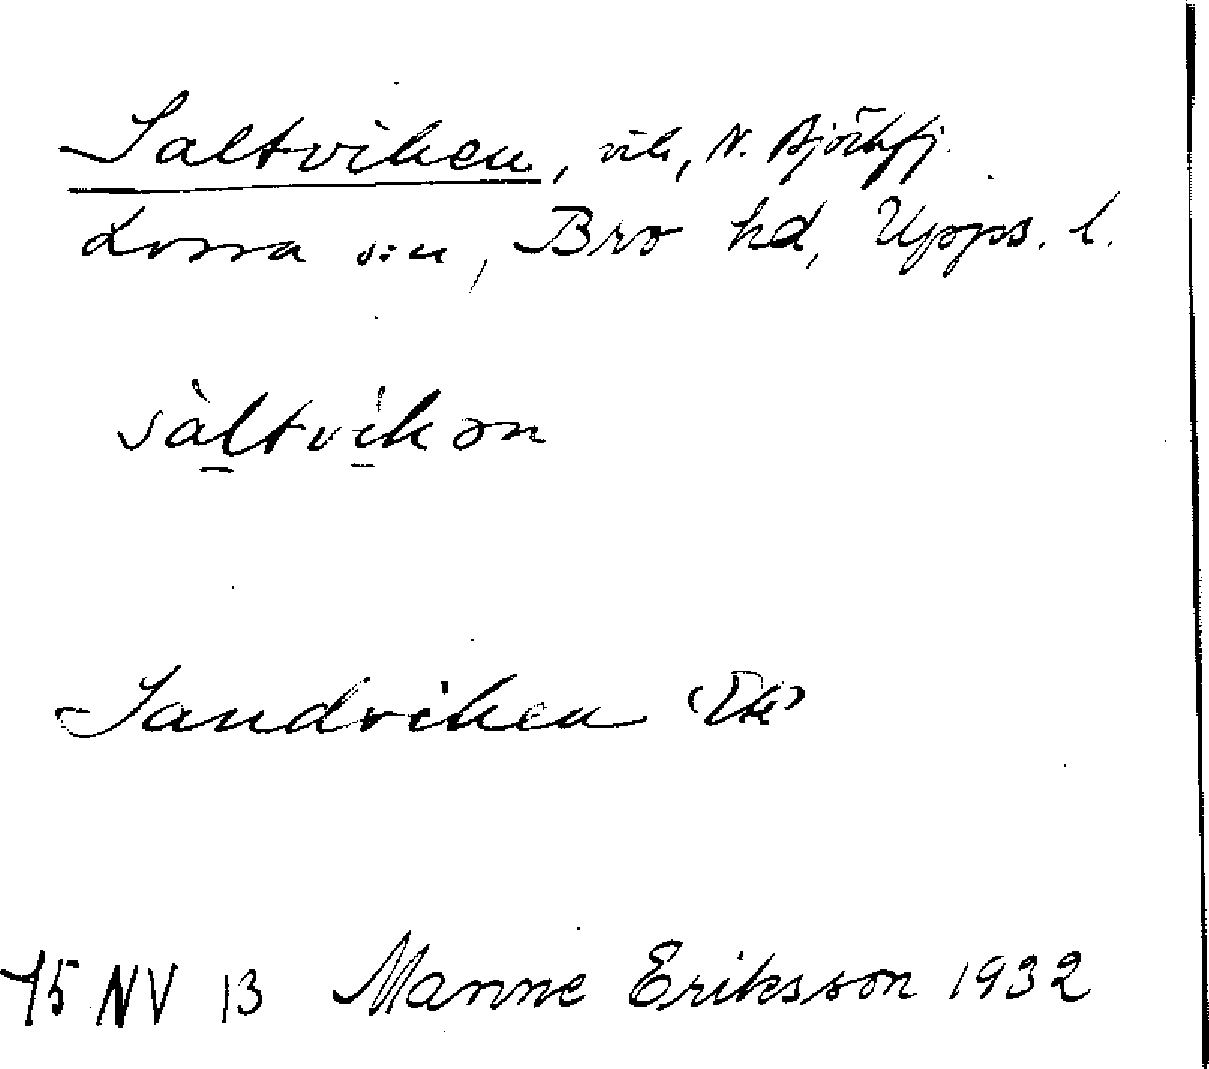 Saltviken, vik, N. Björkfj.
Lossa sn, Bro hd, Upps. l.
sàltvìkən
Sandviken (Ek)
75 NV 13 Manne Eriksson 1932